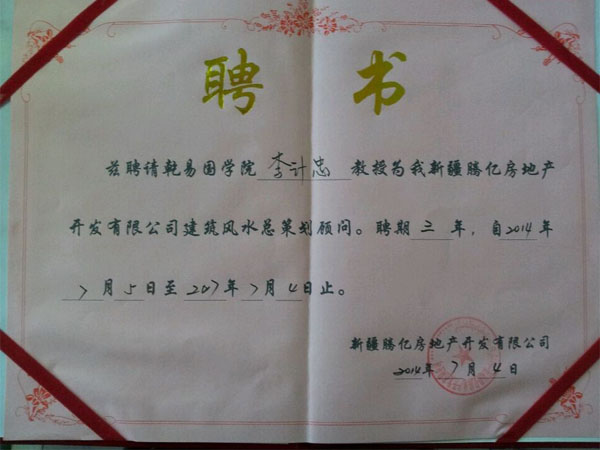 聘 书
兹聘请乾易国学院 李计忠 教授为我新疆腾亿房地产
开发有限公司建筑风水总策划顾问。聘期 三 年,自2014年
7月5日至2017年7月4日止。
新疆腾亿房地产开发有限公司
2014年7月4日